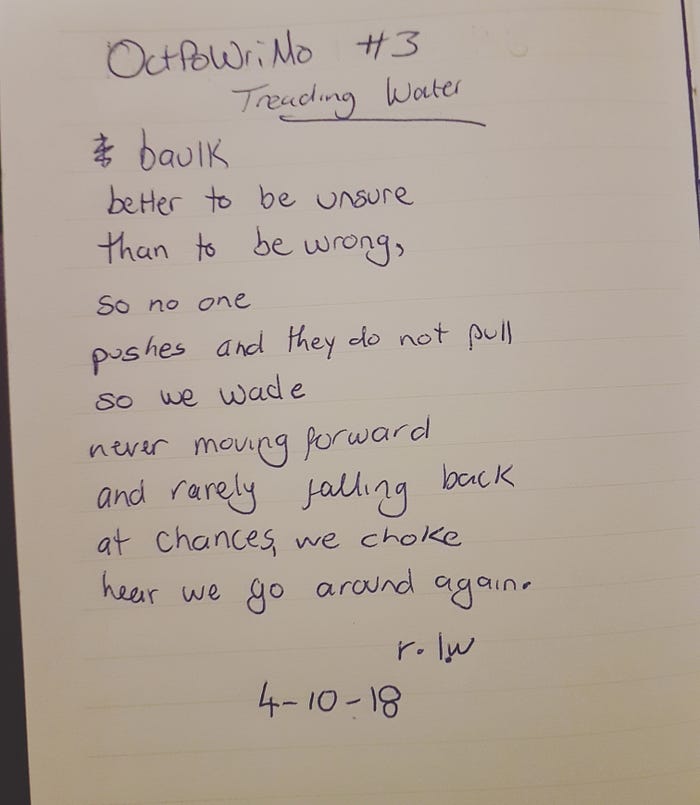 OctPoWriMo #3
Treading Water
baulk
better to be unsure
than to be wrong,
so no one
pushes and they do not pull
so we wade
never moving forward
and rarely falling back
at chances, we choke
hear we go around again.
r. l.w
4-10-18